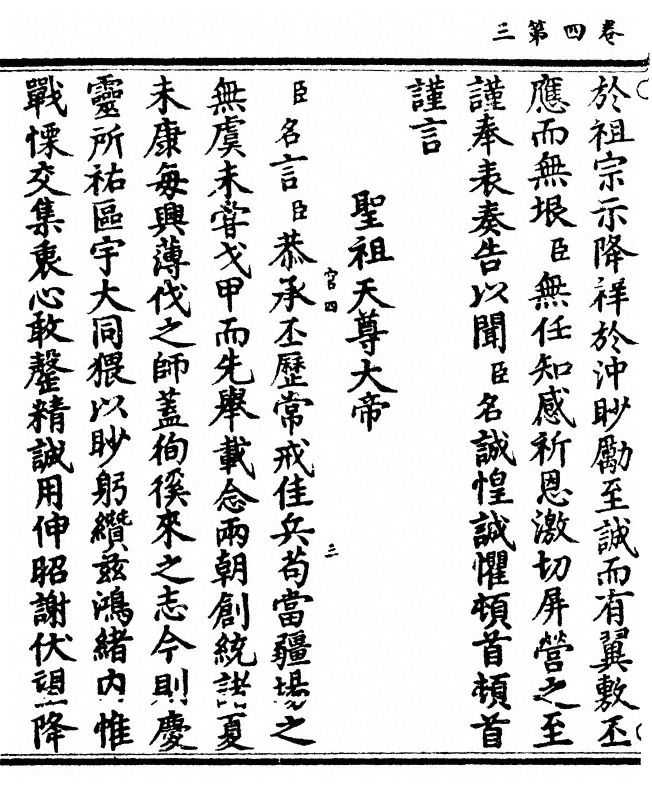 卷四第三
於祖宗示降祥於沖眇勵至誠而有翼敷丕
應而無垠臣無任知感祈恩激切屏營之至
謹奉表奏告以聞臣名誠惶誠懼頓首頓首
謹言
聖祖天尊大帝
宮四
三
臣名言臣恭承丕歷常戒佳兵苟當疆場之
無虞未嘗戈甲而先舉載念兩朝創統諸夏
未康每興薄伐之師蓋徇徯來之志今則慶
靈所祐區宇大同猥以眇躬纘茲鴻緒內惟
戰慄交集衷心敢罄精誠用伸昭謝伏望降